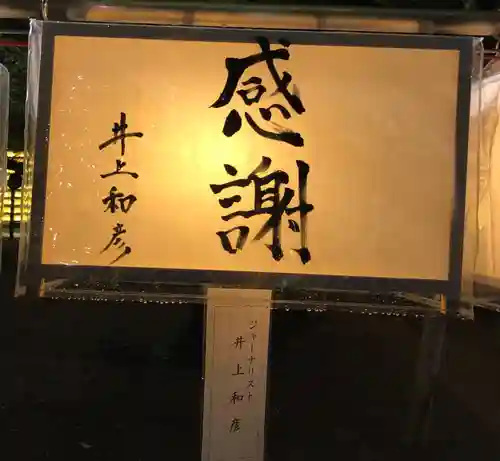 感謝
井上和彦
ジャーナリスト
井上和彦